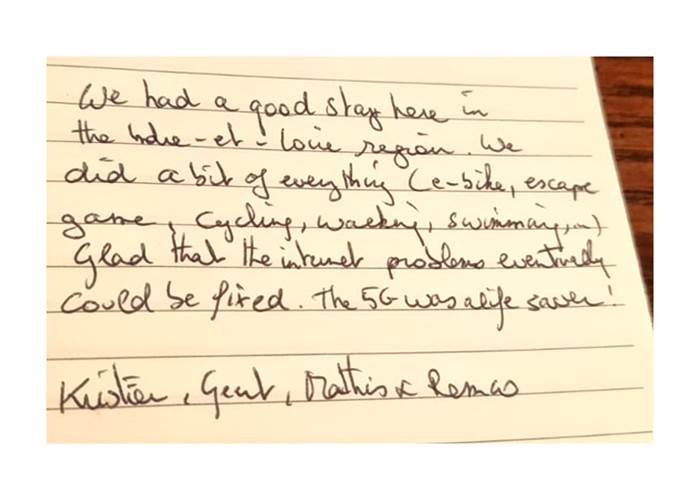 We had a good stay here in
the Indre-et-Loire region. We
did a bit of everything (e-bike, escape
game, cycling, walking, swimming,...)
Glad that the internet problems eventually
could be fixed. The 5G was a life saver!
Kristien, Geert, Mathis &